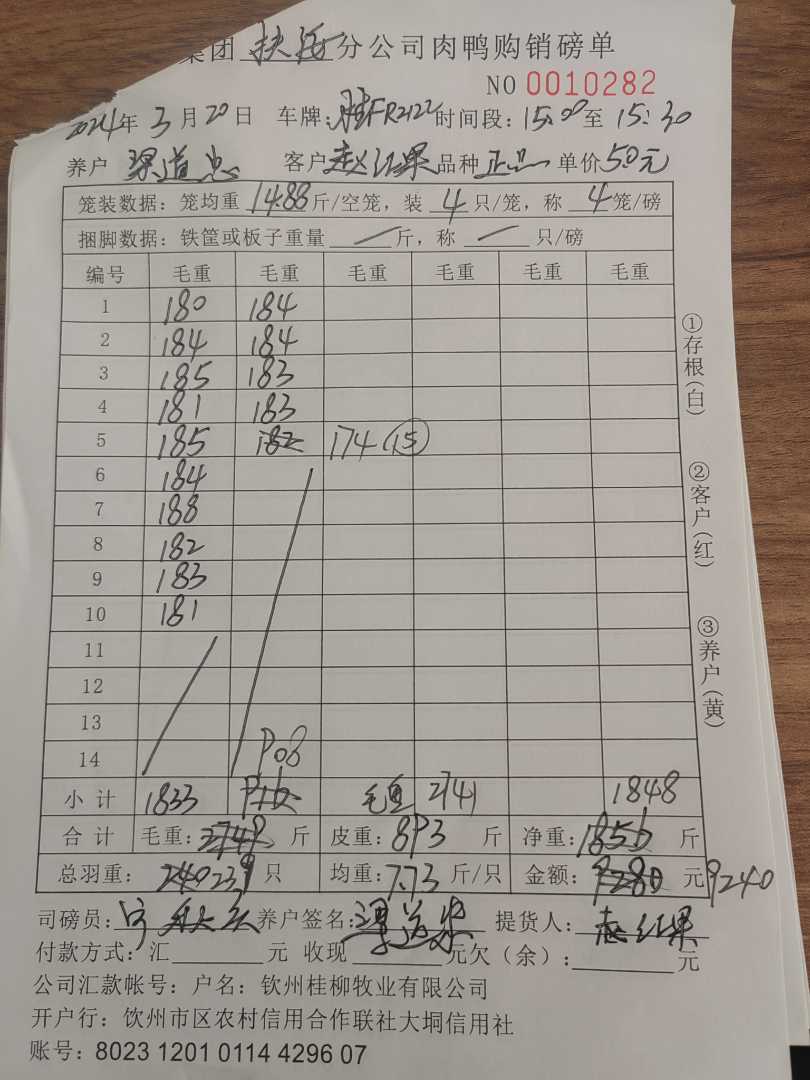 集团 扶绥 分公司肉鸭购销磅单
NO 0010282
2024年 3月 20日 车牌: FR2122 时间段: 15:00至 15:30
养户 渠道忠 客户 赵红果 品种 正品 单价 5.0元
笼装数据: 笼均重 14.88 斤/空笼, 装 4 只/笼, 称 4 笼/磅
捆脚数据: 铁筐或板子重量 / 斤, 称 / 只/磅
编号 毛重 毛重 毛重 毛重 毛重 毛重
1 180 184
2 184 184
3 185 183
4 181 183
5 185 182 174 (15)
6 184
7 188
8 182
9 183
10 181
11
12
13
14 908
小计 1833 916 毛重 2741 1848
合计 毛重: 2749 斤 皮重: 893 斤 净重: 1856 斤
总羽重: 240 239 只 均重: 7.73 斤/只 金额: 9280 元 9240
司磅员: 养户签名: 提货人: 赵红果
付款方式: 汇 元 收现 元 欠(余): 元
公司汇款帐号: 户名: 钦州桂柳牧业有限公司
开户行: 饮州市区农村信用合作联社大垌信用社
账号: 8023 1201 0114 4296 07
①存根(白)
②客户(红)
③养户(黄)